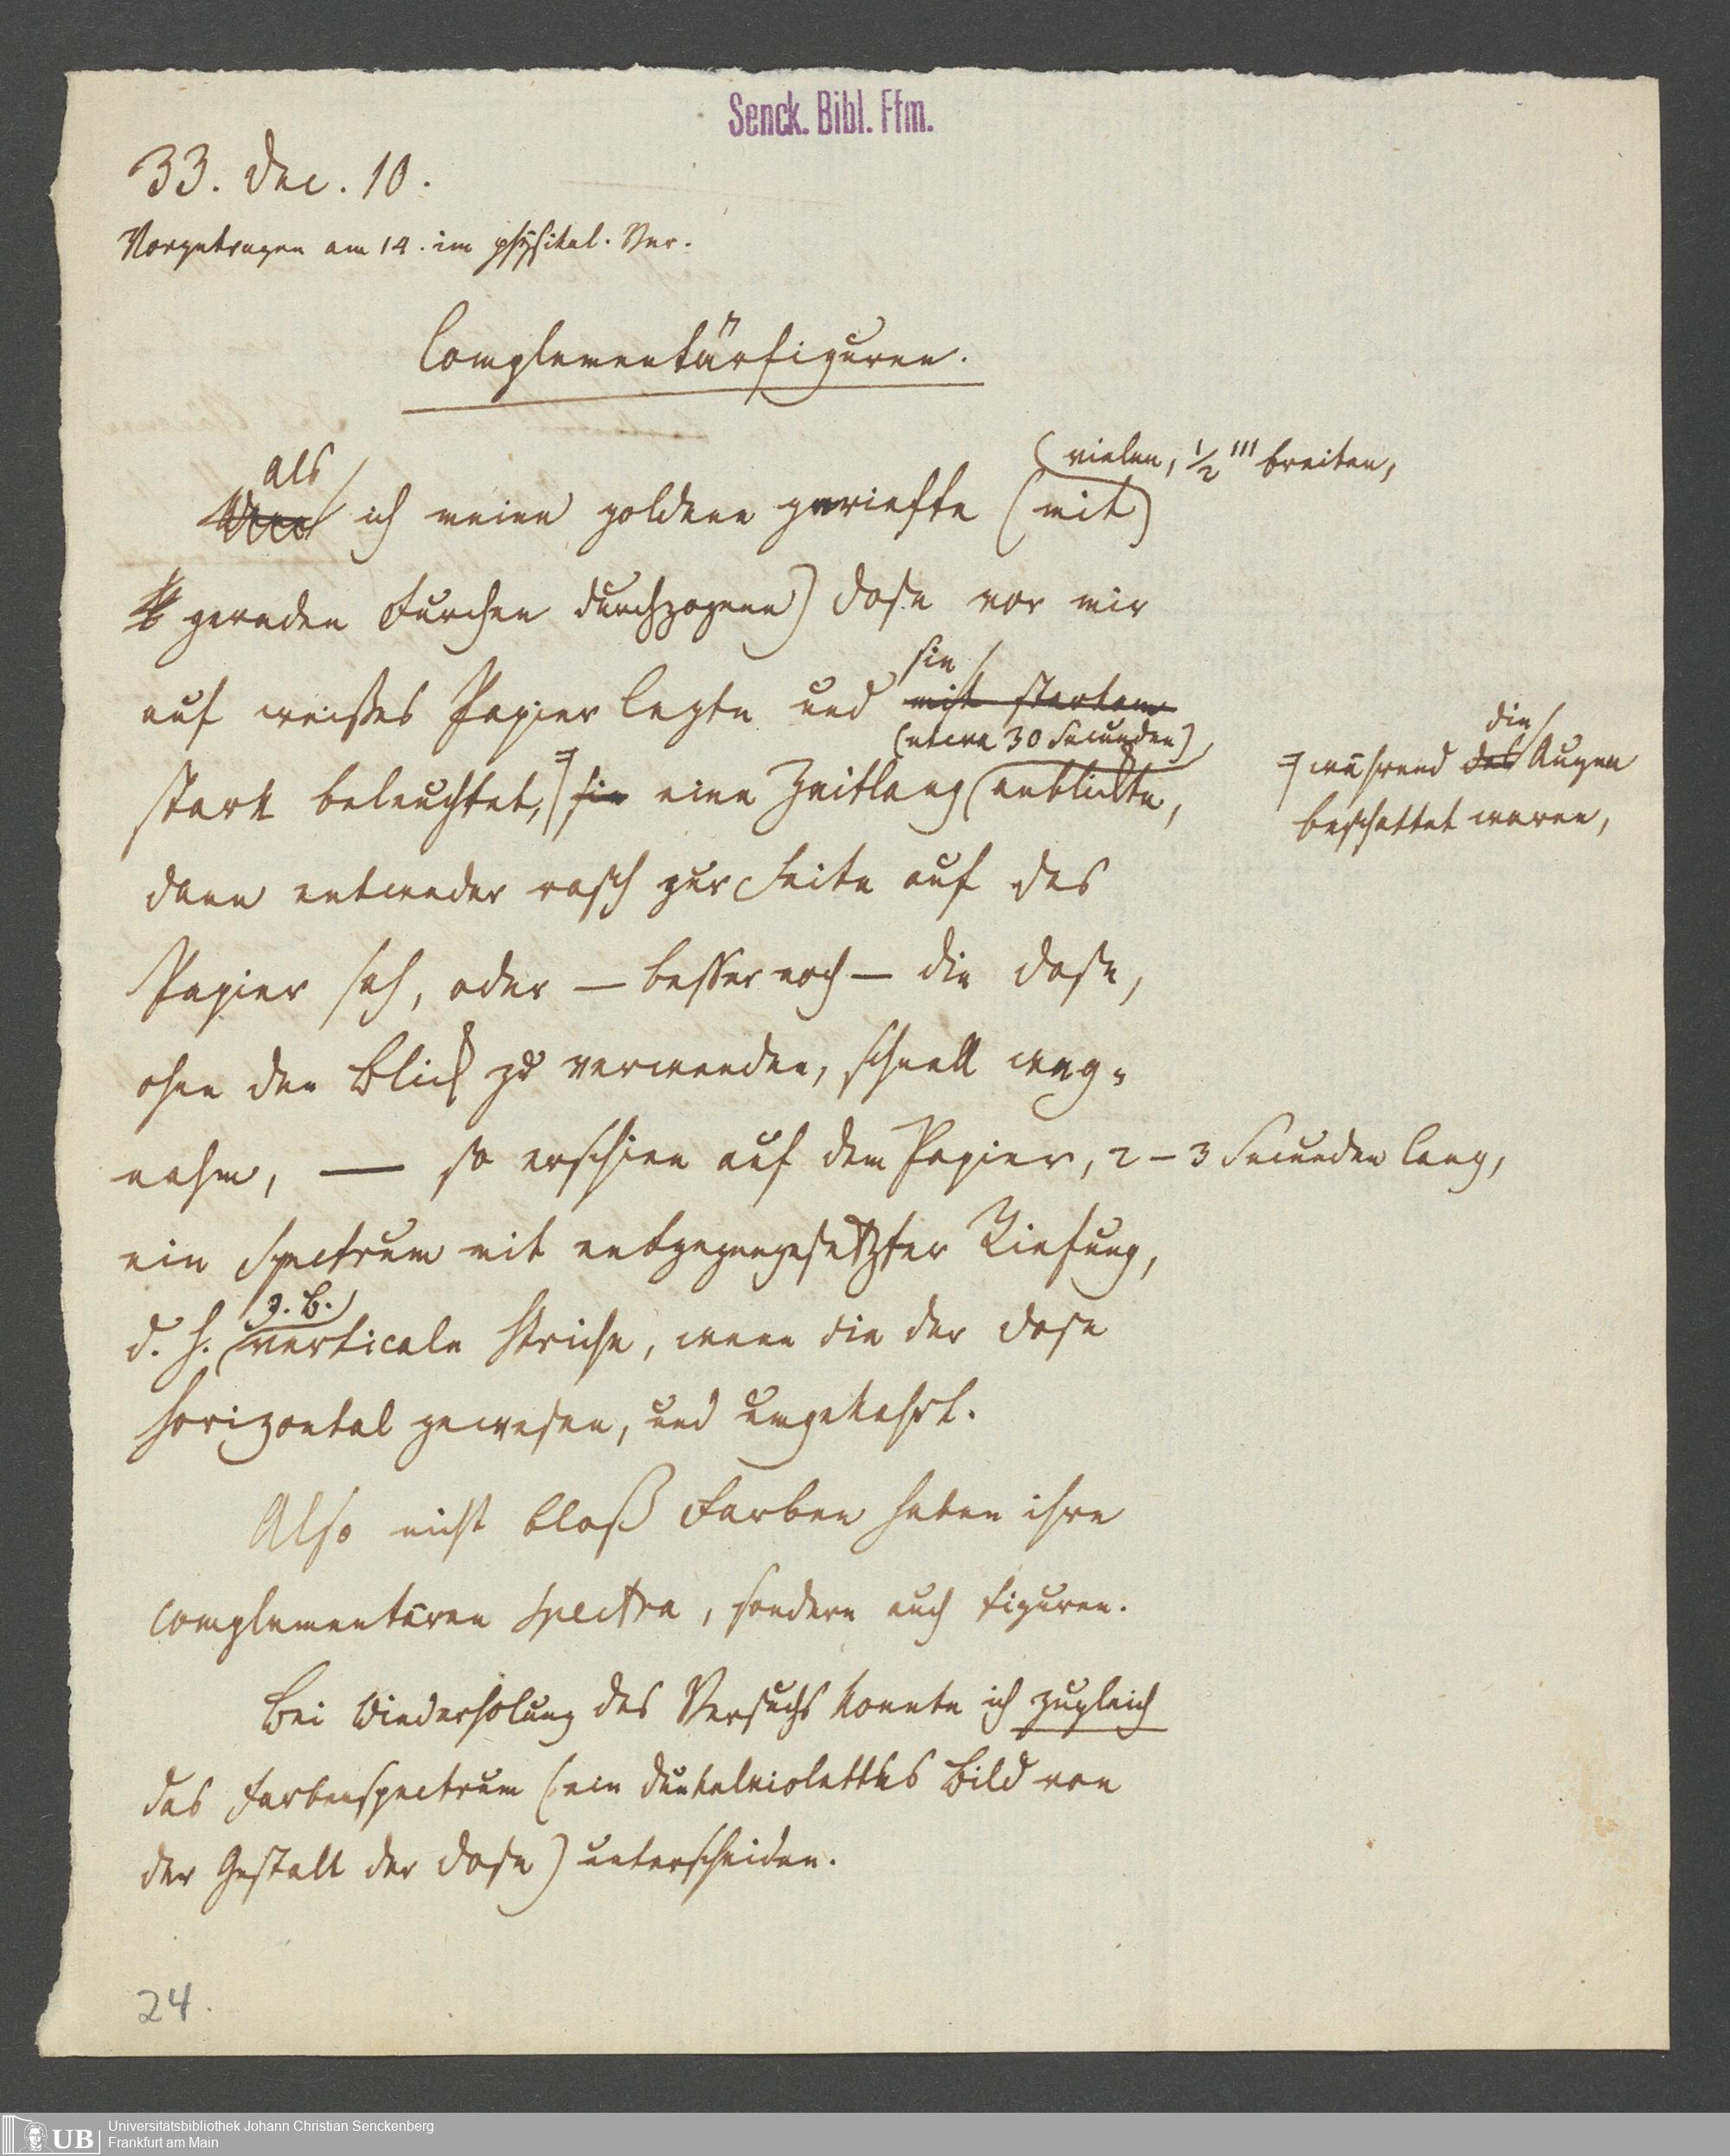 Senck. Bibl. Ffm.
33. Dec. 10.
Vorgetragen am 14. im physikal. Ver.
Complementärfiguren.
Als (vielen, ½''' breiten,
ich meine goldene geriefte (mit)
geraden Furchen durchzogene) Dose vor mir
sie
auf weisses Papier legte und mit starkem
(etwa 30 Secunden), die
stark beleuchtet, sie eine Zeitlang anblickte, während das Augen
beschattet waren,
dann entweder rasch zur Seite auf das
Papier sah, oder — besser noch — die Dose,
ohne den Blick zu verwenden, schnell weg-
nahm, — so erschien auf dem Papier, 2–3 Secunden lang,
ein Spectrum mit entgegengesetzter Riefung,
z. B.
d. h. verticale Striche, wenn die der Dose
horizontal gewesen, und umgekehrt.
Also nicht bloß Farben haben ihre
complementären Spectra, sondern auch Figuren.
Bei Wiederholung des Versuchs konnte ich zugleich
das Farbenspectrum (ein dunkelviolettes Bild von
der Gestalt der Dose) unterscheiden.
24.
UB
Universitätsbibliothek Johann Christian Senckenberg
Frankfurt am Main